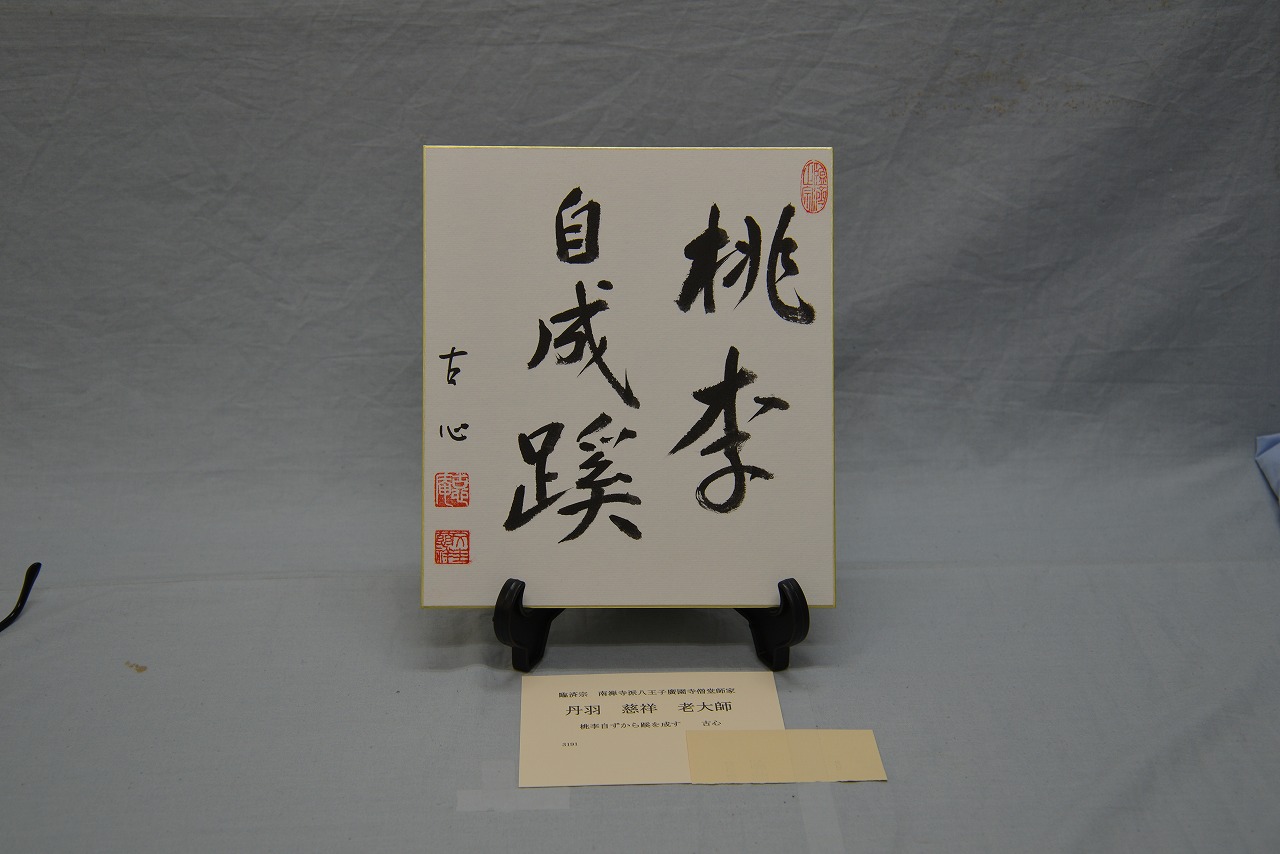 桃李
自成蹊
古心
臨済宗 南禅寺派八王子廣園寺僧堂師家
丹羽 慈祥 老大師
桃李自ずから蹊を成す 古心
5191